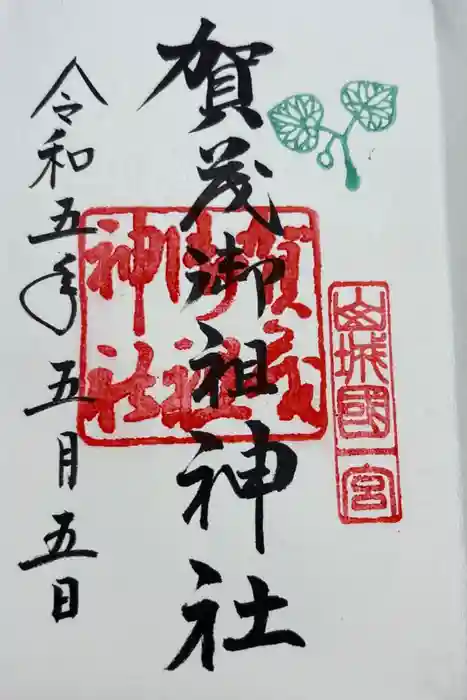 山城國一宮
賀茂御祖神社
賀茂御祖神社
令和五年五月五日